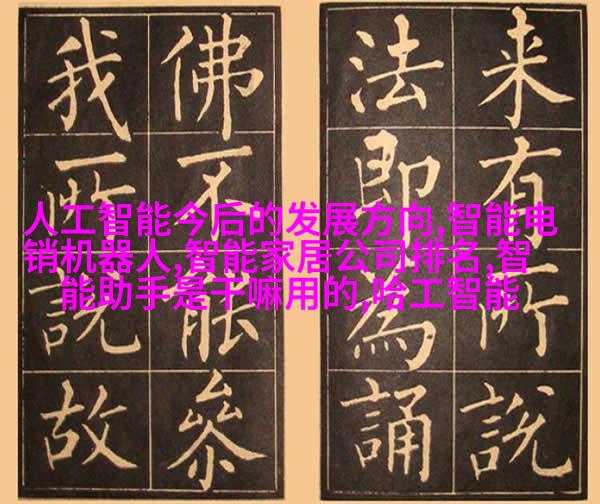 来有所說
法即為誦
佛不能參
我所說故
人工智能今后的发展方向,智能电
销机器人,智能家居公司排名,智
能助手是干嘛用的,哈工智能